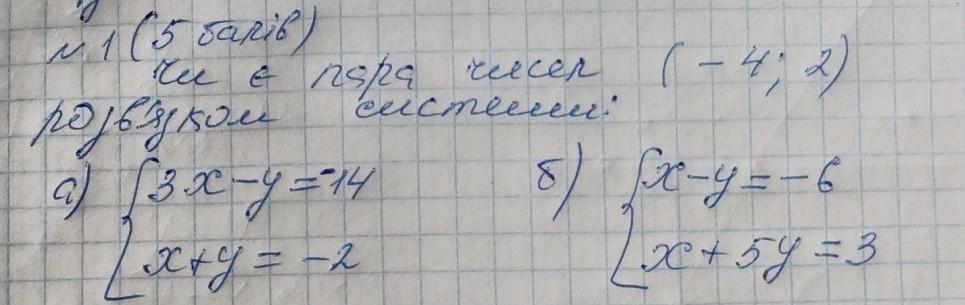 №1 (5 балів)
Чи є пара чисел (-4; 2)
розв'язком системи:
а) { 3x - y = -14 б) { x - y = -6
x + y = -2 x + 5y = 3